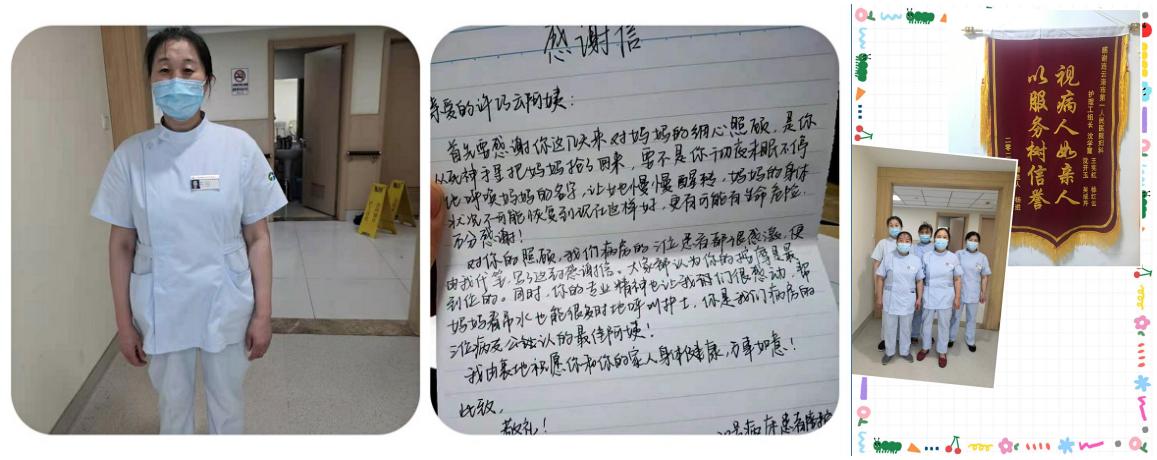 感谢信
亲爱的许巧云阿姨：
首先要感谢你这几天来对妈妈的细心照顾，是你
从死神手里把妈妈抢了回来，要不是你初夜未眠不停
地呼唤妈妈的名字，让她慢慢醒转，妈妈的身体
状况不可能恢复到现在这样好，更有可能有生命危险，
万分感谢！
对你的照顾，我们病房的三位患者都很感激，便
由我代笔，写了这封感谢信。大家都认为你的按摩是最
到位的。同时，你的专业精神也让我们很感动，帮
妈妈看吊水也能很及时地呼叫护士，你是我们病房的
三位病友公认的最佳阿姨！
我由衷地祝愿你和你的家人身体健康，万事如意！
此致，
敬礼！
病床患者
感谢连云港市第一人民医院妇科
护理工组长
视病人如亲人
以服务树信誉